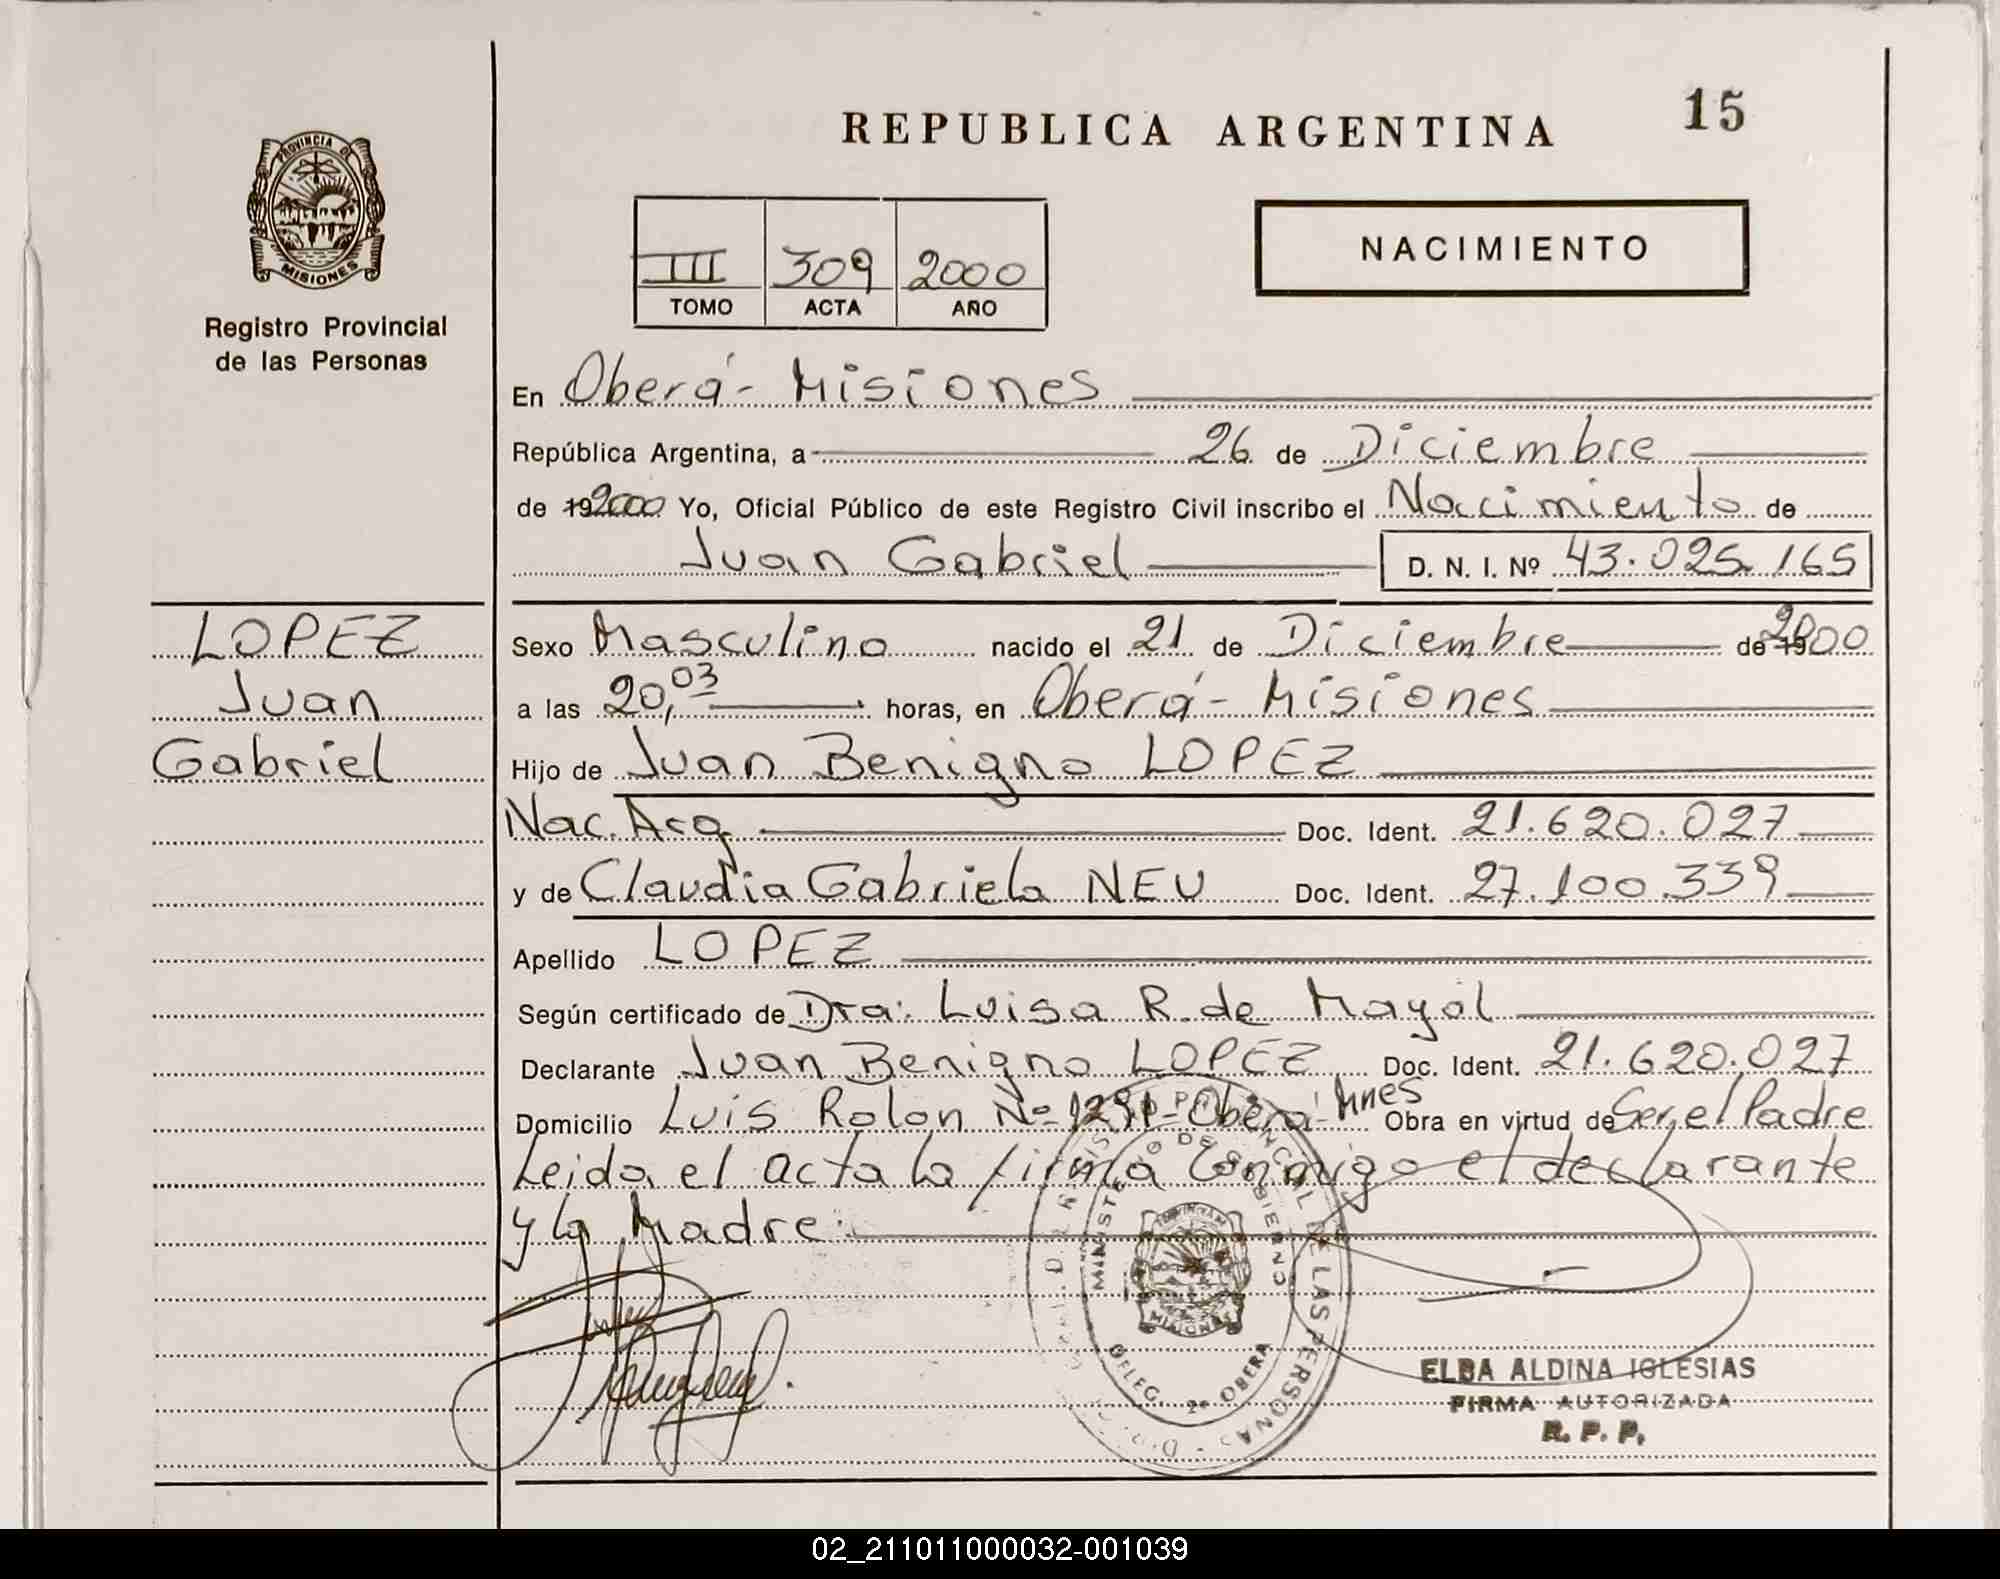 REPUBLICA ARGENTINA
15
PROVINCIA DE
MISIONES
Registro Provincial
de las Personas
III 309 2000
TOMO ACTA AÑO
NACIMIENTO
En Oberá - Misiones
República Argentina, a 26 de Diciembre
de 192000 Yo, Oficial Público de este Registro Civil inscribo el Nacimiento de
Juan Gabriel D. N. I. Nº 43.025.165
LOPEZ
Juan
Gabriel
Sexo Masculino nacido el 21 de Diciembre de 19 2000
a las 20,03 horas, en Oberá - Misiones
Hijo de Juan Benigno LOPEZ
Nac. Arg. Doc. Ident. 21.620.027
y de Claudia Gabriela NEU Doc. Ident. 27.100.339
Apellido LOPEZ
Según certificado de Dra: Luisa R. de Mayol
Declarante Juan Benigno LOPEZ Doc. Ident. 21.620.027
Domicilio Luis Rolon Nº 1291 - Oberá - Mnes Obra en virtud de Ser el Padre
Leida el acta la firma conmigo el declarante
y la Madre:
MINISTERIO DE GOBIERNO
DELEG. 2º OBERA
DE LAS PERSONAS
MISIONES
ELBA ALDINA IGLESIAS
FIRMA AUTORIZADA
R. P. P.
02_211011000032-001039